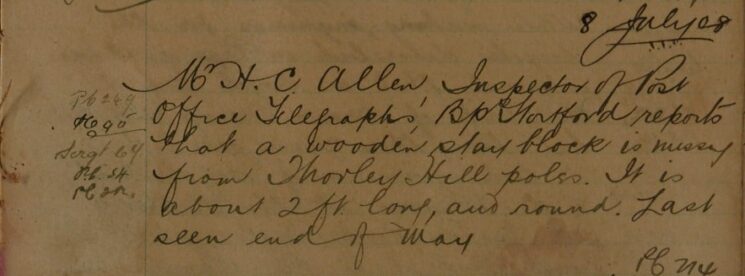 8 July 08
Mr H. C. Allen, Inspector of Post
Office Telegraphs, Bp Stortford reports
that a wooden stay block is missg
from Thorley Hill poles. It is
about 2 ft. long, and round. Last
seen end of May
PC 249
Sergt 64
P.C. 54
PC